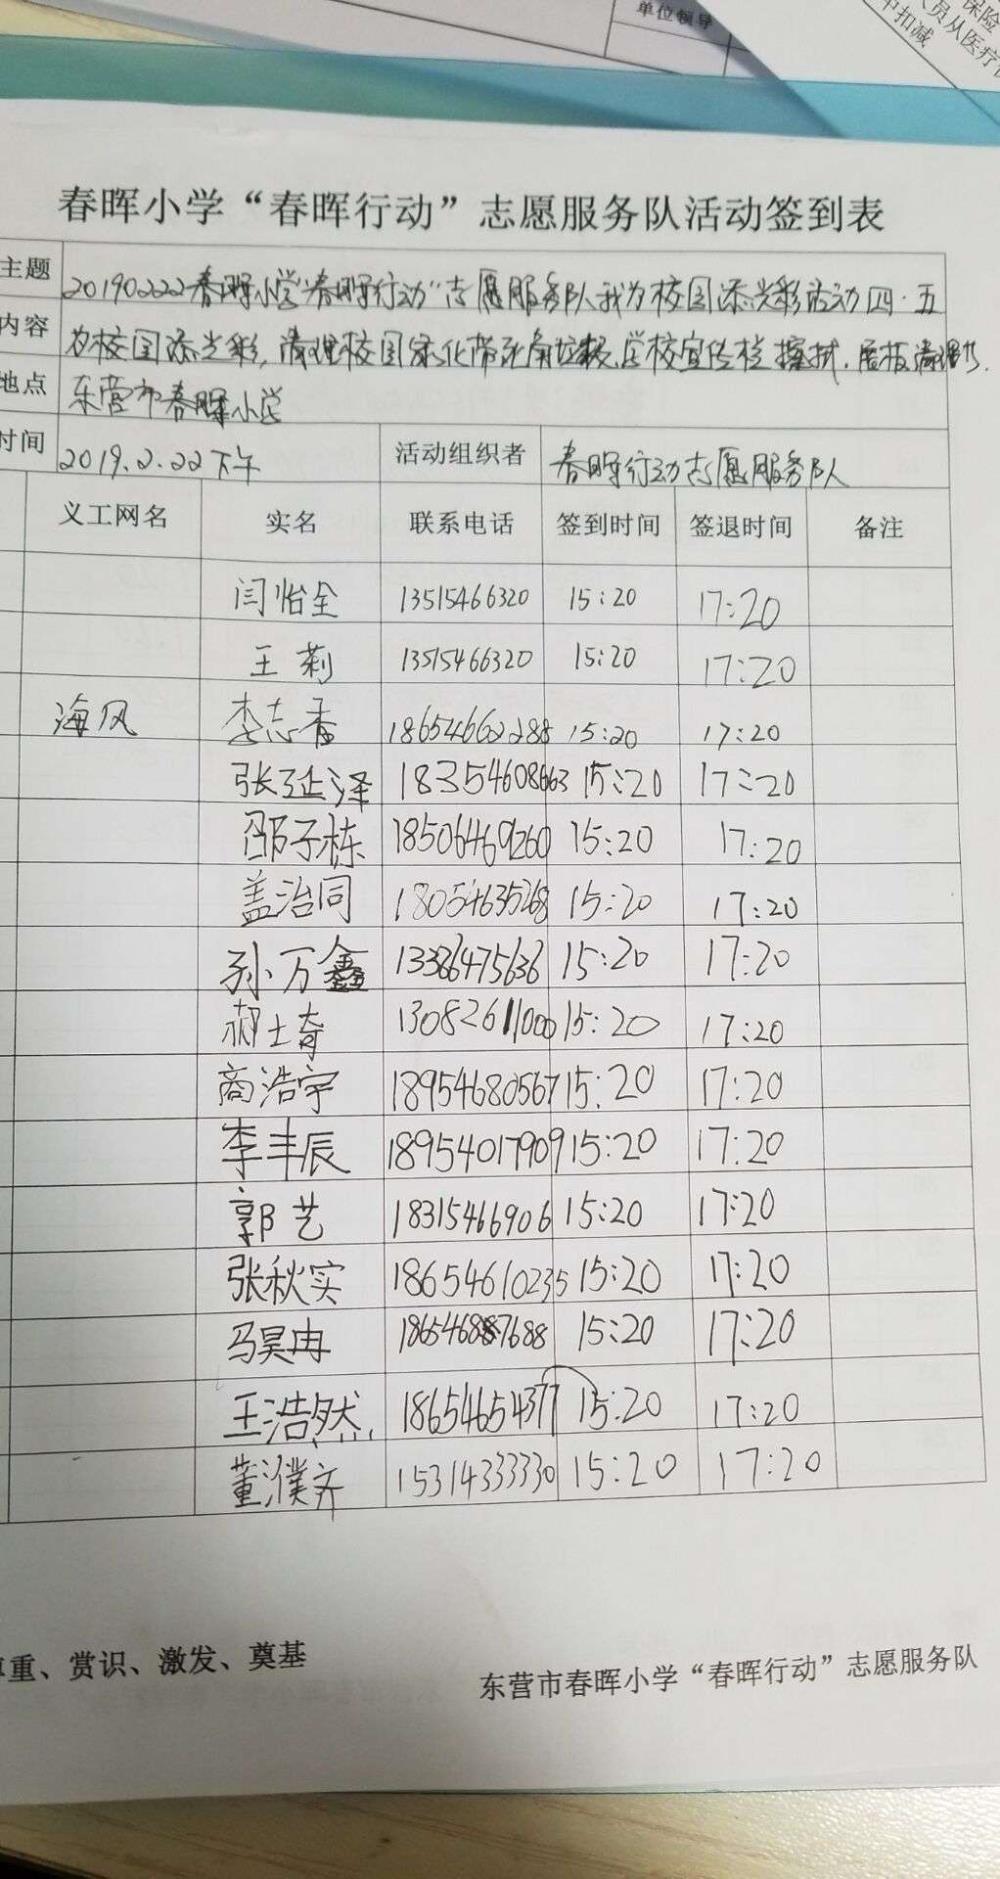 单位领导
保险
人员从医疗
中扣减
春晖小学“春晖行动”志愿服务队活动签到表
主题 20190222春晖小学“春晖行动”志愿服务队我为校园添光彩活动四·五
内容 为校园添光彩,清理校园绿化带死角垃圾,学校宣传栏擦拭,展板清理
地点 东营市春晖小学
时间 2019.2.22下午 活动组织者 春晖行动志愿服务队
义工网名 实名 联系电话 签到时间 签退时间 备注
闫怡全 13515466320 15:20 17:20
王莉 13515466320 15:20 17:20
海风 李志香 18654662288 15:20 17:20
张延泽 18354608663 15:20 17:20
邵子栋 18506469260 15:20 17:20
盖治同 18054635268 15:20 17:20
孙万鑫 13386475636 15:20 17:20
郝士奇 13082611000 15:20 17:20
商浩宇 18954680567 15:20 17:20
李丰辰 18954017909 15:20 17:20
郭艺 18315466906 15:20 17:20
张秋实 18654610235 15:20 17:20
马昊冉 186546887688 15:20 17:20
王浩然 18654654377 15:20 17:20
董濮齐 15314333330 15:20 17:20
重、赏识、激发、奠基
东营市春晖小学“春晖行动”志愿服务队